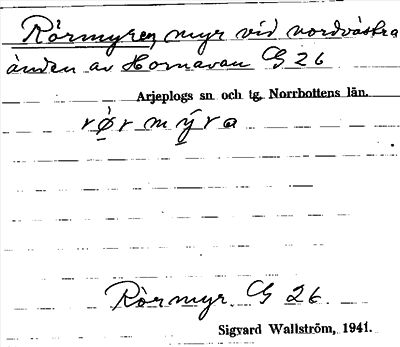 Rörmyren, myr vid nordvästra
änden av Hornavan G 26
Arjeplogs sn. och tg. Norrbottens län.
Rörmyr. G 26.
Sigvard Wallström, 1941.